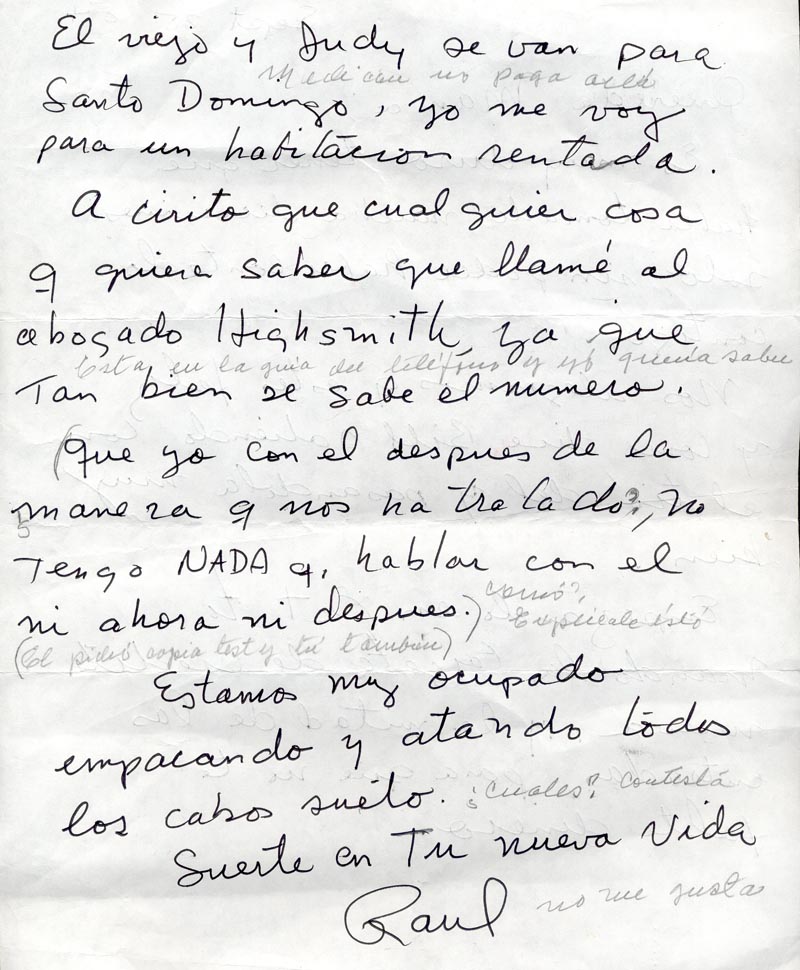 El viejo y Judy se van para
Medicare no paga allá
Santo Domingo, yo me voy
para un habitacion rentada.
A cirito que cualquier cosa
q quiera saber que llamé al
abogado Highsmith, ya que
Esta en la guia del teléfono y yo quería saber
Tan bien se sabe el numero.
(que yo con el despues de la
manera q nos ha tratado?, no
Tengo NADA q, hablar con el
ni ahora ni despues.)
como?,
Explicale ésto
(El pidió copia test y tú también)
Estamos muy ocupado
empacando y atando todos
los cabos suelto. ¿cuales? contesta
Suerte en Tu nueva Vida
Raul no me gusta